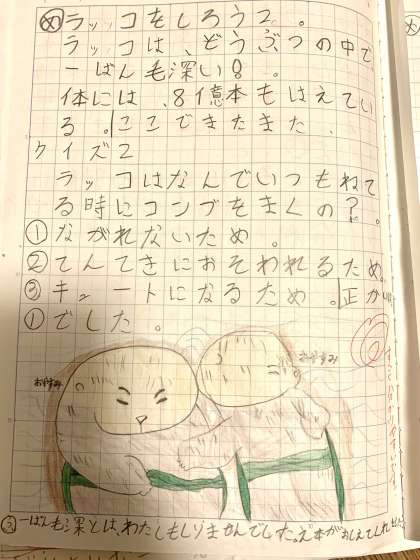 ㋱ラッコをしろう2。
ラッコは、どうぶつの中で
一ばん毛深い!!。
体には、8億本もはえてい
る。ここできたまた、
クイズ2
ラッコはなんでいつもねて
る時にコンブをまくの?。
①ながれないため。
②てんてきにおそわれるため。
③キュートになるため。正かいは
①でした。
おやすみ
おやすみ
一ばん毛深とは、わたしもしりませんでした。え本がおしえてくれ